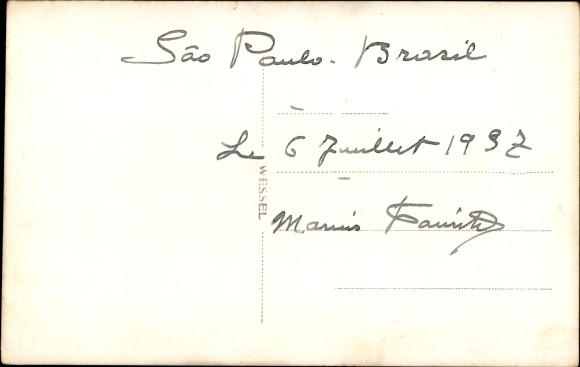 São Paulo - Brasil
Le 6 Juillet 1937
WESSEL
Marius